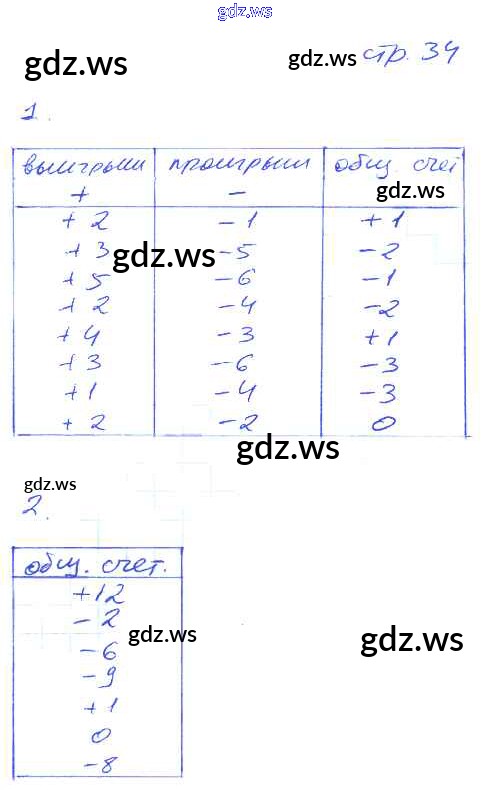 gdz.ws
gdz.ws
gdz.ws стр. 34
1.
выигрыши проигрыши общ. счет
+ - gdz.ws
+2 -1 +1
+3 gdz.ws -5 -2
+5 -6 -1
+2 -4 -2
+4 -3 +1
+3 -6 -3
+1 -4 -3
+2 -2 0
gdz.ws
gdz.ws
2.
общ. счет.
+12
-2
gdz.ws gdz.ws
-6
-9
+1
0
-8